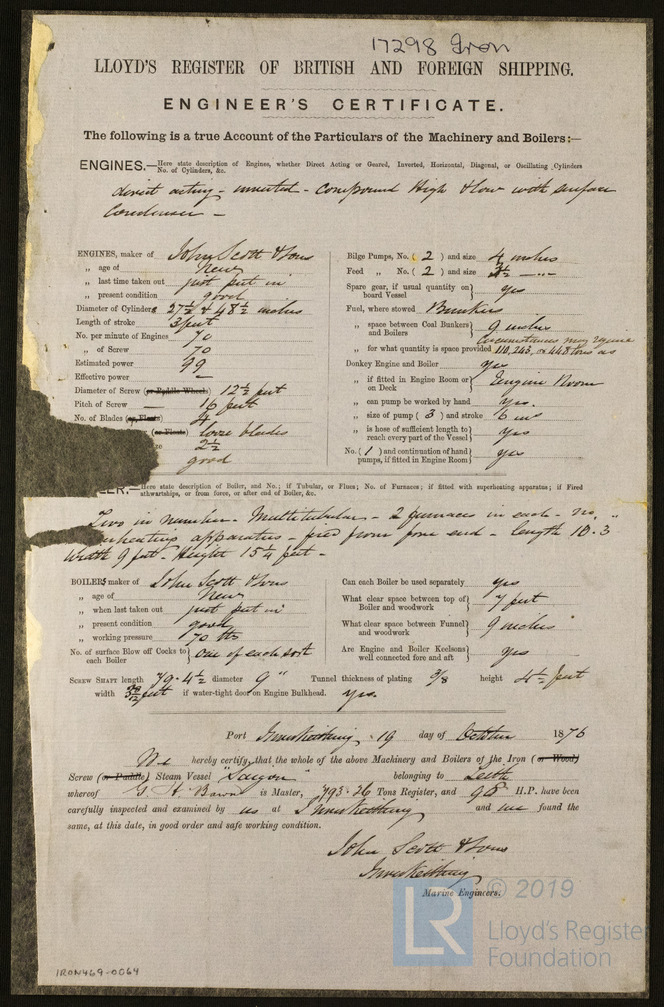 17298 Iron
LLOYD'S REGISTER OF BRITISH AND FOREIGN SHIPPING.
ENGINEER'S CERTIFICATE.
The following is a true Account of the Particulars of the Machinery and Boilers:—
ENGINES.—Here state description of Engines, whether Direct Acting or Geared, Inverted, Horizontal, Diagonal, or Oscillating Cylinders
No. of Cylinders, &c.
direct acting - inverted - compound High & low with surface
Condenser —
ENGINES, maker of John Scott & Sons
„ age of New
„ last time taken out just put in
„ present condition good
Diameter of Cylinders 27½ & 48½ inches
Length of stroke 3 feet
No. per minute of Engines 70
„ of Screw 70
Estimated power 99
Effective power —
Diameter of Screw (or Paddle Wheels) 12½ feet
Pitch of Screw — 16 feet
No. of Blades (or Floats) 4
(or Floats) loose blades
2½
good
Bilge Pumps, No. ( 2 ) and size 4 inches
Feed „ No. ( 2 ) and size 3½ —„—
Spare gear, if usual quantity on board Vessel } yes
Fuel, where stowed Bunkers
„ space between Coal Bunkers and Boilers } 9 inches
Circumstances may require
„ for what quantity is space provided 110, 243, or 448 tons as
Donkey Engine and Boiler yes
„ if fitted in Engine Room or on Deck } Engine Room
„ can pump be worked by hand yes.
„ size of pump ( 3 ) and stroke 6 ins
„ is hose of sufficient length to reach every part of the Vessel } yes
No. ( 1 ) and continuation of hand pumps, if fitted in Engine Room } yes
Here state description of Boiler, and No.; if Tubular, or Flues; No. of Furnaces; if fitted with superheating apparatus; if Fired
athwartships, or from force, or after end of Boiler, &c.
Two in number - Multitubular - 2 furnaces in each - no
apparatus - fired from fore end - length 10.3
Width 9 feet - Height 15¼ feet -
BOILERS maker of John Scott & Sons
„ age of New
„ when last taken out just put in
„ present condition good
„ working pressure 70 lbs
No. of surface Blow off Cocks to each Boiler } one of each sort
Can each Boiler be used separately yes
What clear space between top of Boiler and woodwork } 7 feet
What clear space between Funnel and woodwork } 9 inches
Are Engine and Boiler Keelsons well connected fore and aft } yes
SCREW SHAFT length 79.4½ diameter 9" Tunnel thickness of plating 3/8 height 4½ feet
width feet if water-tight door on Engine Bulkhead. Yes.
Port Inverkeithing 19 day of October 1876
We hereby certify, that the whole of the above Machinery and Boilers of the Iron (or Wood)
Screw (or Paddle) Steam Vessel "Saigon" belonging to Leith
whereof G. H. is Master, 793.26 Tons Register, and 98 H.P. have been
carefully inspected and examined by us at Inverkeithing and we found the
same, at this date, in good order and safe working condition.
John Scott & Sons
Inverkeithing
Marine Engineers.
IRON469-0064
LR © 2019
Lloyd's Register
Foundation